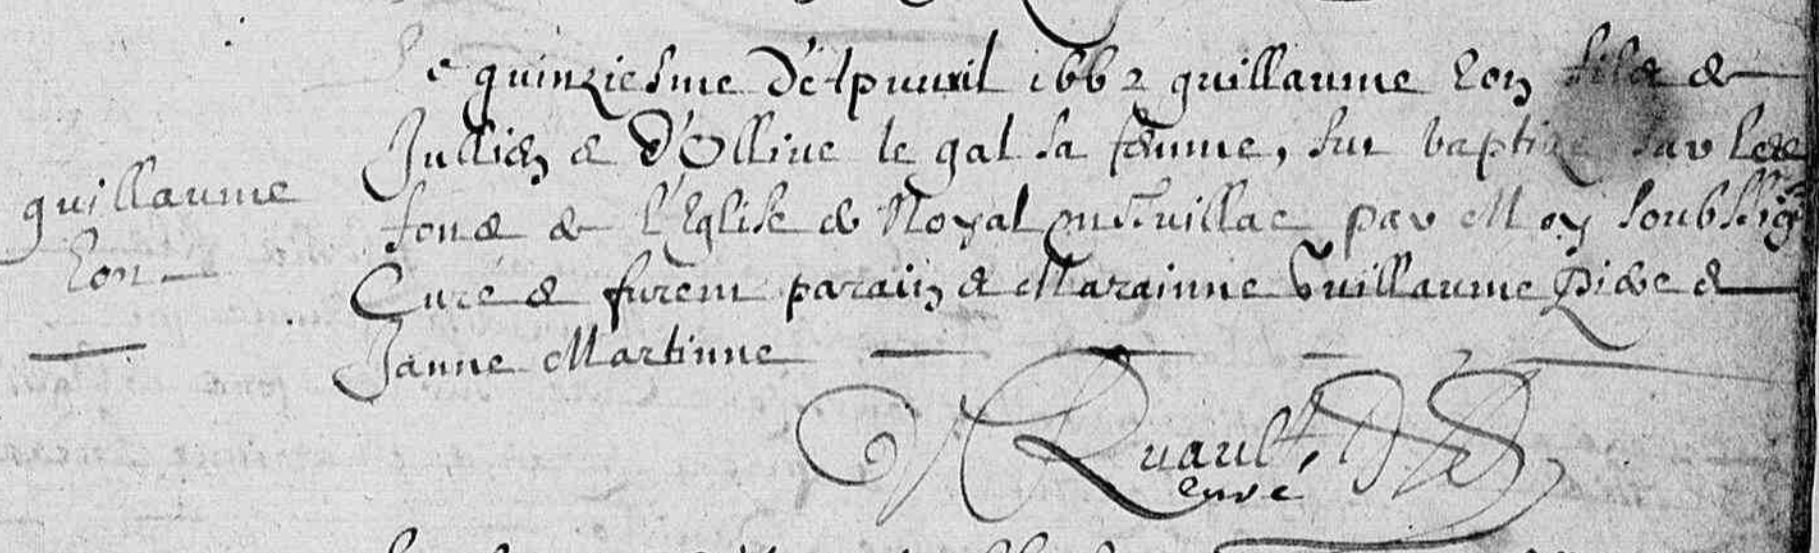 Le quinziesme d'Apvuril 1662 guillaume Lon fils de
Jullien & d'Ollive le gal sa femme, fut baptizé sur les
guillaume
Lon
fons de l'Eglise de Noyal Muzillac par Moy soubsig
Curé & furent parain & Marainne Guillaume &
Janne Martinne
Ruault,
curé